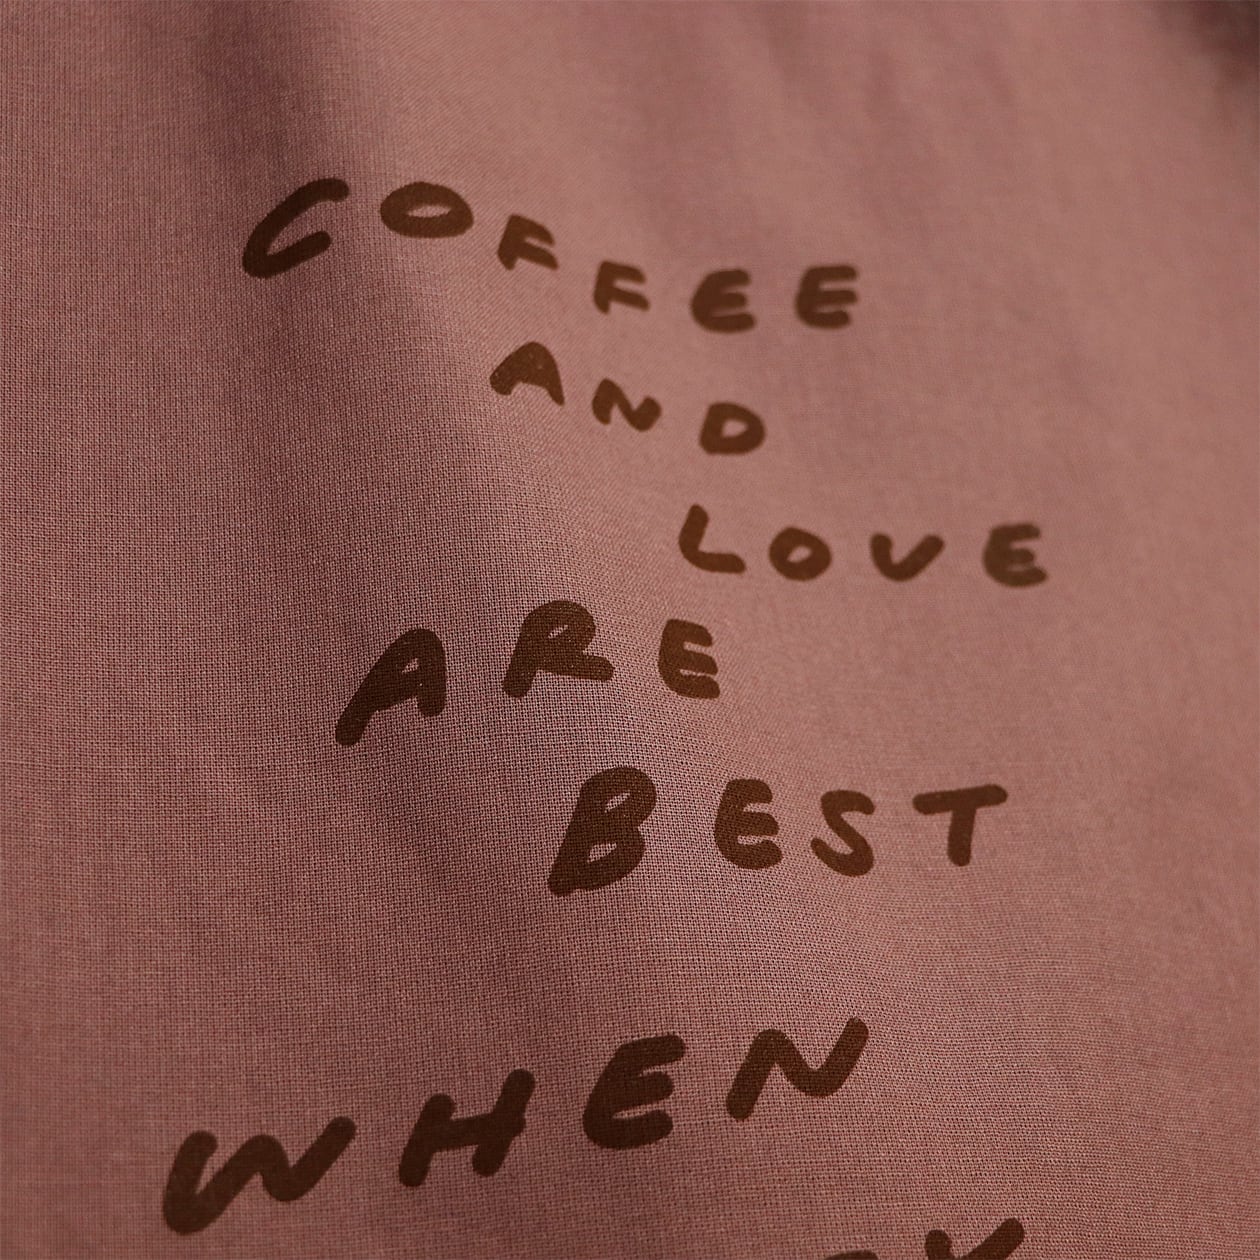 COFFEE
AND
LOVE
ARE
BEST
WHEN